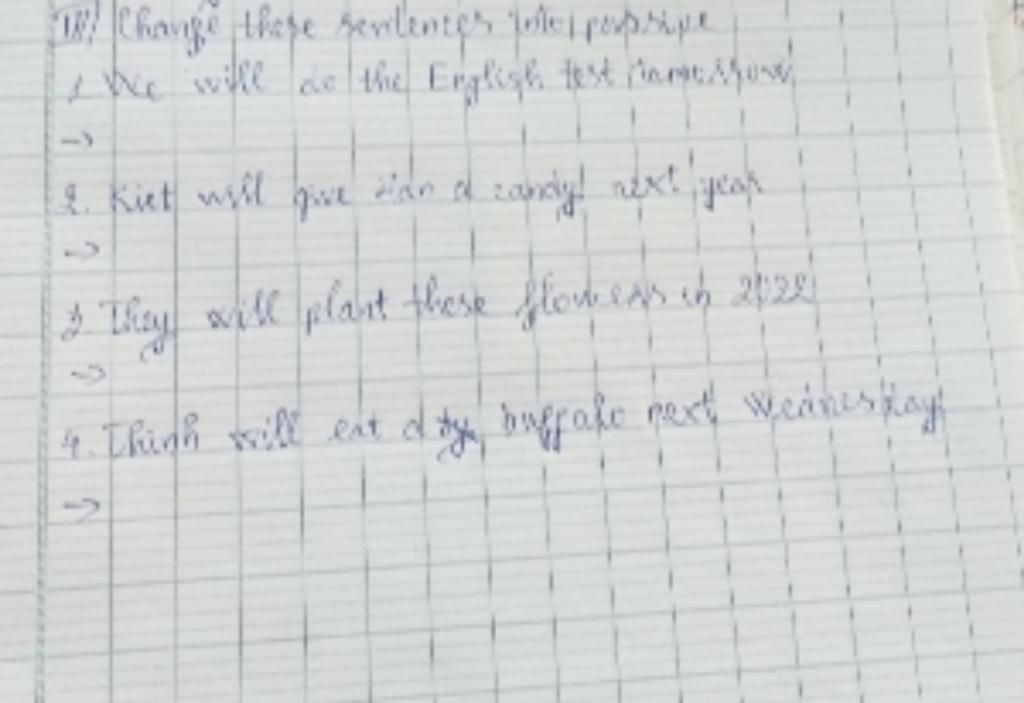 Change these sentences into passive
1. We will do the English test tomorrow
->
2. Kiet will give a candy next year
->
3. They will plant these flowers in 2022
->
4. Thinh will eat a buffalo next Wednesday
->